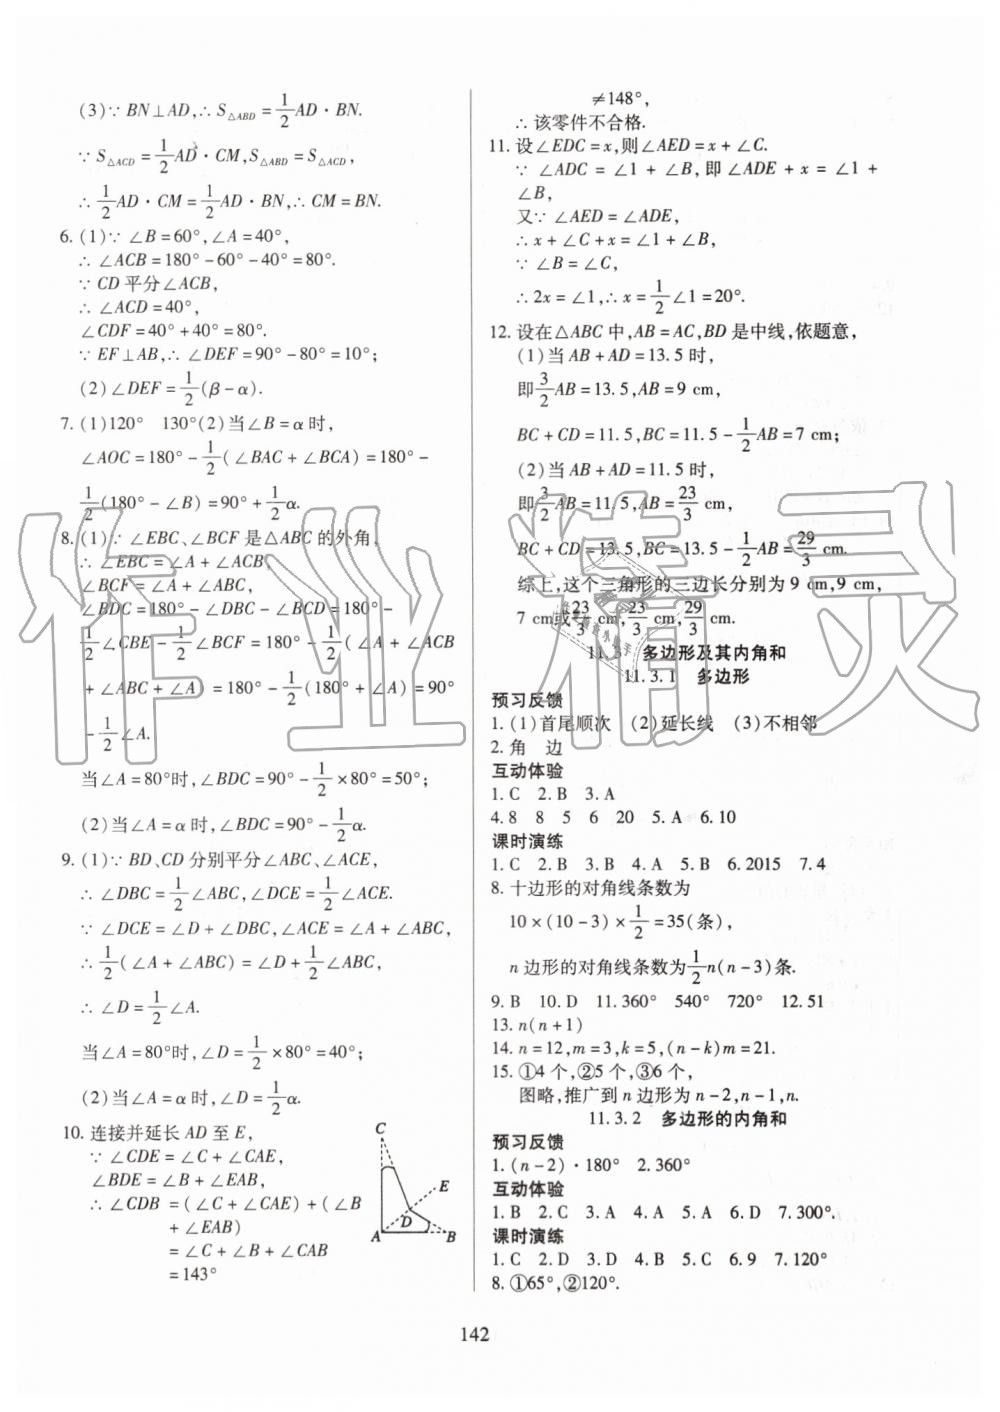 (3)∵ BN⊥AD,∴ S△ABD = 1/2 AD·BN.
∵ S△ACD = 1/2 AD·CM,S△ABD = S△ACD,
∴ 1/2 AD·CM = 1/2 AD·BN,∴ CM=BN.
6. (1)∵ ∠B=60°,∠A=40°,
∴ ∠ACB=180°-60°-40°=80°.
∵ CD平分∠ACB,
∴ ∠ACD=40°,
∠CDF=40°+40°=80°.
∵ EF⊥AB,∴ ∠DEF=90°-80°=10°;
(2)∠DEF= 1/2 (β-α).
7. (1)120° 130°(2)当∠B=α时,
∠AOC=180°- 1/2 (∠BAC+∠BCA)=180°-
1/2 (180°-∠B)=90°+ 1/2 α.
8. (1)∵ ∠EBC、∠BCF是△ABC的外角,
∴ ∠EBC=∠A+∠ACB,
∠BCF=∠A+∠ABC,
∠BDC=180°-∠DBC-∠BCD=180°-
1/2 ∠CBE- 1/2 ∠BCF=180°- 1/2 (∠A+∠ACB
+∠ABC+∠A)=180°- 1/2 (180°+∠A)=90°
- 1/2 ∠A.
当∠A=80°时,∠BDC=90°- 1/2 ×80°=50°;
(2)当∠A=α时,∠BDC=90°- 1/2 α.
9. (1)∵ BD、CD分别平分∠ABC、∠ACE,
∴ ∠DBC= 1/2 ∠ABC,∠DCE= 1/2 ∠ACE.
∵ ∠DCE=∠D+∠DBC,∠ACE=∠A+∠ABC,
∴ 1/2 (∠A+∠ABC)=∠D+ 1/2 ∠ABC,
∴ ∠D= 1/2 ∠A.
当∠A=80°时,∠D= 1/2 ×80°=40°;
(2)当∠A=α时,∠D= 1/2 α.
10. 连接并延长AD至E,
∵ ∠CDE=∠C+∠CAE,
∠BDE=∠B+∠EAB,
∴ ∠CDB =(∠C+∠CAE)+(∠B
+∠EAB)
=∠C+∠B+∠CAB
=143°
C
E
D
A
B
≠148°,
∴ 该零件不合格.
11. 设∠EDC=x,则∠AED=x+∠C.
∵ ∠ADC=∠1+∠B,即∠ADE+x=∠1+
∠B,
又∵ ∠AED=∠ADE,
∴ x+∠C+x=∠1+∠B,
∵ ∠B=∠C,
∴ 2x=∠1,∴ x= 1/2 ∠1=20°.
12. 设在△ABC中,AB=AC,BD是中线,依题意,
(1)当AB+AD=13.5时,
即 3/2 AB=13.5,AB=9 cm,
BC+CD=11.5,BC=11.5- 1/2 AB=7 cm;
(2)当AB+AD=11.5时,
即 3/2 AB=11.5,AB= 23/3 cm,
BC+CD=13.5,BC=13.5- 1/2 AB= 29/3 cm.
综上,这个三角形的三边长分别为9 cm,9 cm,
7 cm或 23/3 cm, 23/3 cm, 29/3 cm.
11.3 多边形及其内角和
11.3.1 多边形
预习反馈
1. (1)首尾顺次 (2)延长线 (3)不相邻
2. 角 边
互动体验
1. C 2. B 3. A
4. 8 8 5 6 20 5. A 6. 10
课时演练
1. C 2. B 3. B 4. A 5. B 6. 2015 7. 4
8. 十边形的对角线条数为
10×(10-3)× 1/2 =35(条),
n边形的对角线条数为 1/2 n(n-3)条.
9. B 10. D 11. 360° 540° 720° 12. 51
13. n(n+1)
14. n=12,m=3,k=5,(n-k)m=21.
15. ①4个,②5个,③6个,
图略,推广到n边形为n-2,n-1,n.
11.3.2 多边形的内角和
预习反馈
1. (n-2)·180° 2. 360°
互动体验
1. B 2. C 3. A 4. A 5. A 6. D 7. 300°.
课时演练
1. C 2. D 3. D 4. B 5. C 6. 9 7. 120°
8. ①65°,②120°.
142
作业精灵